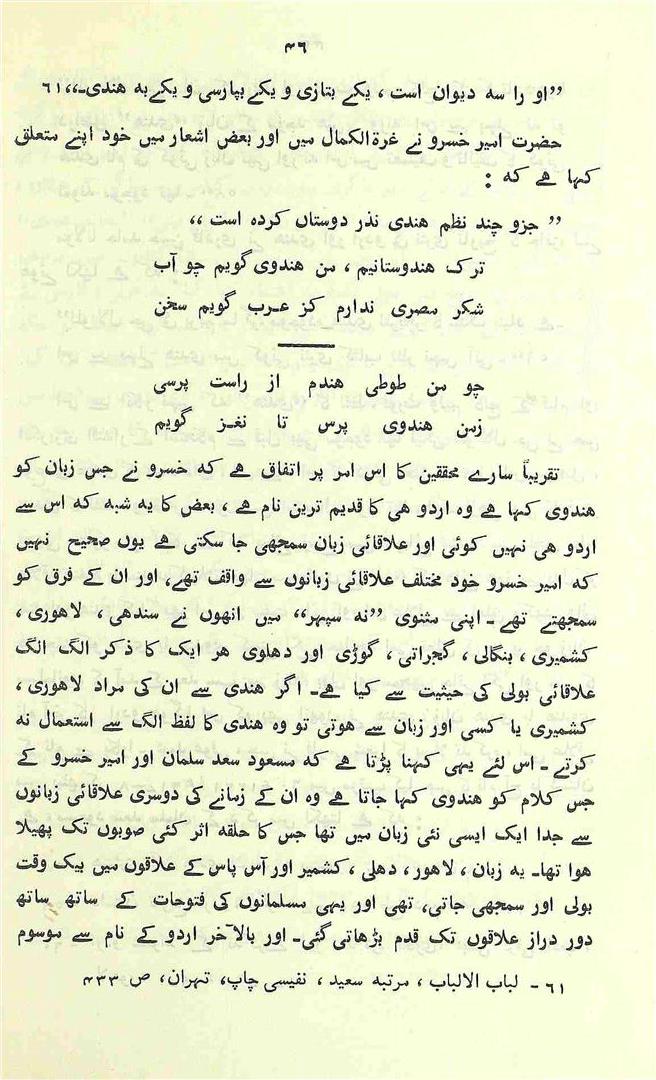 ۳۶
”او را سه دیوان است ، یکے بتازی و یکے بپارسی و یکے به هندی۔“ ۶۱
حضرت امیر خسرو نے غرة الکمال میں اور بعض اشعار میں خود اپنے متعلق
کہا ہے کہ :
” جزو چند نظم هندی نذر دوستاں کرده است “
ترک هندوستانیم ، من هندوی گویم چو آب
شکر مصری ندارم کز عرب گویم سخن
چو من طوطی هندم از راست پرسی
زمن هندوی پرس تا نغز گویم
تقریباً سارے محققین کا اس امر پر اتفاق ہے کہ خسرو نے جس زبان کو
ھندوی کہا ہے وہ اردو ھی کا قدیم ترین نام ہے ، بعض کا یہ شبہ کہ اس سے
اردو ھی نہیں کوئی اور علاقائی زبان سمجھی جا سکتی ہے یوں صحیح نہیں
کہ امیر خسرو خود مختلف علاقائی زبانوں سے واقف تھے، اور ان کے فرق کو
سمجھتے تھے ۔ اپنی مثنوی ”نہ سپہر“ میں انھوں نے سندھی ، لاھوری ،
کشمیری ، بنگالی ، گجراتی ، گوڑی اور دھلوی ھر ایک کا ذکر الگ الگ
علاقائی بولی کی حیثیت سے کیا ہے۔ اگر ھندی سے ان کی مراد لاھوری ،
کشمیری یا کسی اور زبان سے ھوتی تو وہ ھندی کا لفظ الگ سے استعمال نہ
کرتے ۔ اس لئے یہی کہنا پڑتا ہے کہ مسعود سعد سلمان اور امیر خسرو کے
جس کلام کو ھندوی کہا جاتا ہے وہ ان کے زمانے کی دوسری علاقائی زبانوں
سے جدا ایک ایسی نئی زبان میں تھا جس کا حلقہ اثر کئی صوبوں تک پھیلا
ھوا تھا۔ یہ زبان ، لاھور ، دھلی ، کشمیر اور آس پاس کے علاقوں میں بیک وقت
بولی اور سمجھی جاتی، تھی اور یہی مسلمانوں کی فتوحات کے ساتھ ساتھ
دور دراز علاقوں تک قدم بڑھاتی گئی۔ اور بالآخر اردو کے نام سے موسوم
۶۱ - لباب الالباب ، مرتبہ سعید ، نفیسی چاپ، تہران، ص ۴۳۳